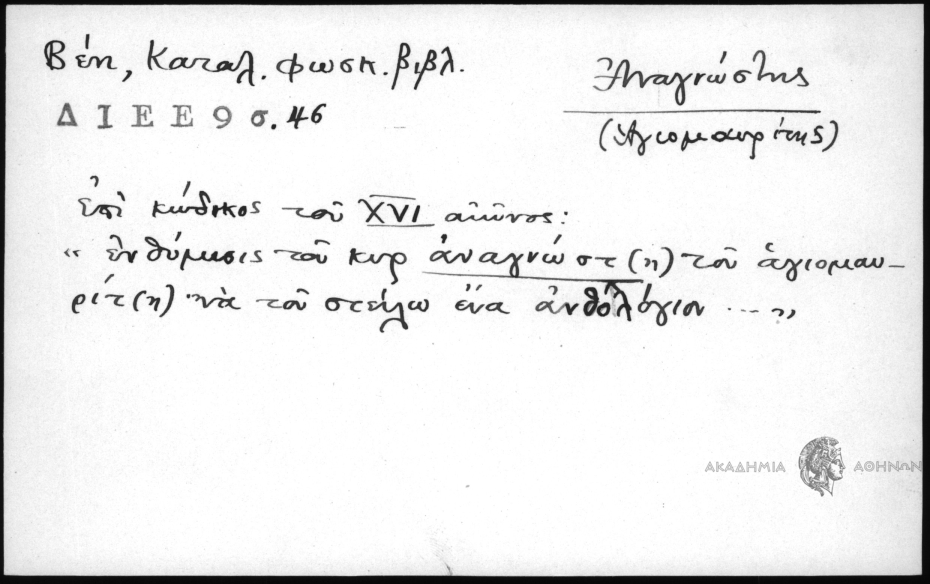 Βέη, Καταλ. φωσκ. βιβλ.
ΔΙΕΕ 9 σ. 46
Ἀναγνώστης
(Ἁγιομαυρίτης)
ἐπὶ κώδικος τοῦ XVI αἰῶνος:
« ἐνθύμισις τοῦ κυρ ἀναγνώστ(η) τοῦ ἁγιομαυ-
ρίτ(η) νὰ τοῦ στείλω ἕνα ἀνθολόγιον ... »
ΑΚΑΔΗΜΙΑ ΑΘΗΝΩΝ